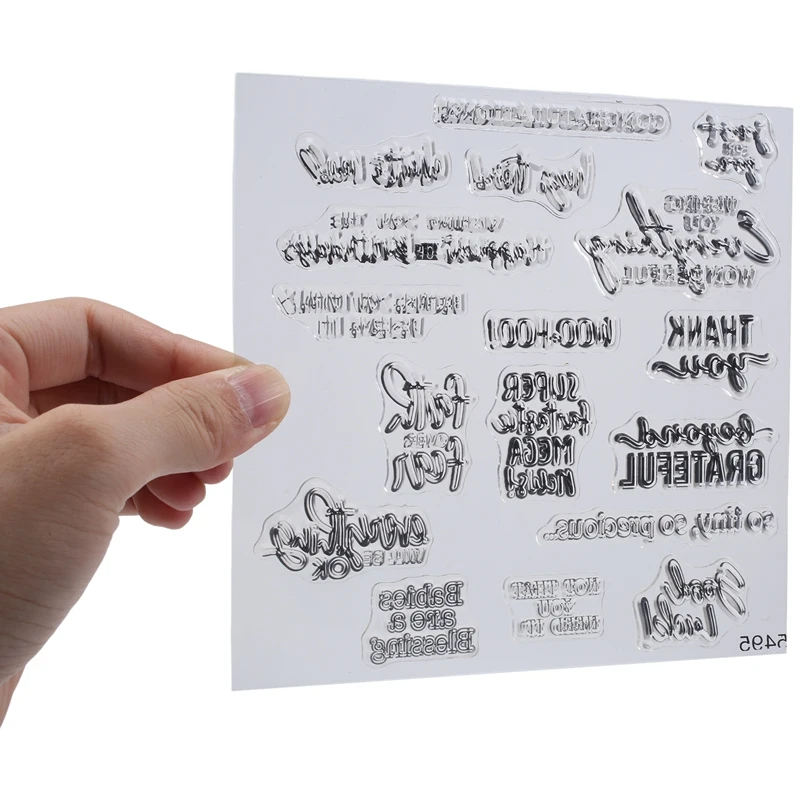 CONGRATULATIONS!
just
be
you
what's new?
WISHING YOU
Everything
WONDERFUL
Happiest
birthdays
WOO-HOO!
THANK
you
faith
OVER
fear
SUPER
fantastic
MEGA
news!
beyond
GRATEFUL
everything
WILL BE
OK
so tiny, so precious...
Babies
are a
Blessing
NOT THAT
YOU
NEED IT!
Good
Luck!
5495